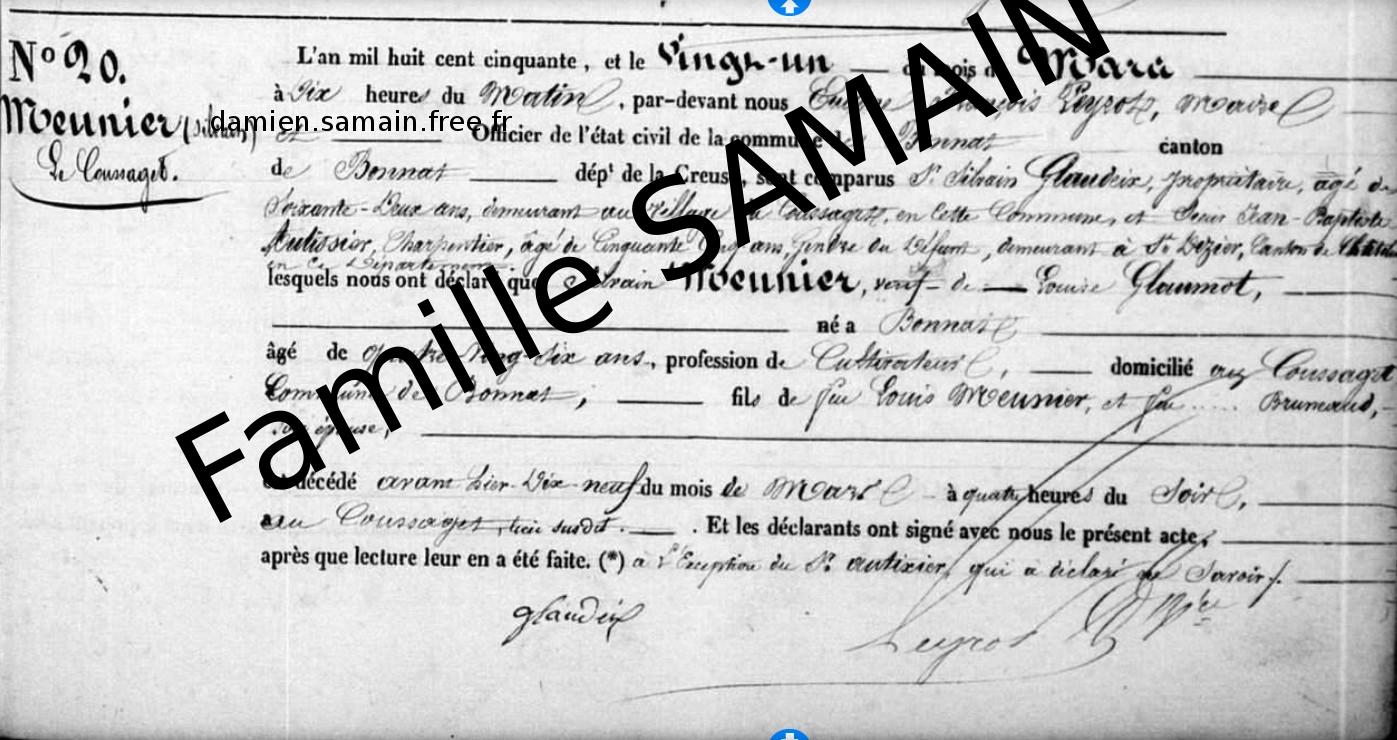 N° 20.
Meunier (Silvain)
Le Coussaget.
damien.samain.free.fr
Famille SAMAIN
L'an mil huit cent cinquante, et le Vingt-un du mois de Mars
à Dix heures du Matin, par-devant nous François Peyrot, Maire
et Officier de l'état civil de la commune de Bonnat canton
de Bonnat dépt de la Creuse, sont comparus Sr. Silvain Glaudeix, propriétaire, âgé de
Soixante-Deux ans, demeurant au Village du Coussaget, en cette Commune, et Sieur Jean-Baptiste
Autissier, Charpentier, âgé de Cinquante Cinq ans, Gendre du Défunt, demeurant à St Dizier, Canton de
en ce Département.
lesquels nous ont déclaré que Silvain Meunier, veuf de Louise Glaumot,
né a Bonnat
âgé de Quatre Vingt Six ans, profession de Cultivateur, domicilié au Coussaget
Commune de Bonnat; fils de feu Louis Meunier, et feu ..... Brumaud,
Son épouse,
est décédé avant hier Dix neuf du mois de Mars à quatre heures du Soir,
au Coussaget, lieu susdit. . Et les déclarants ont signé avec nous le présent acte,
après que lecture leur en a été faite. (*) à l'Exception du Sr. autixier, qui a déclaré ne Savoir /.
glaudeix
Peyrot